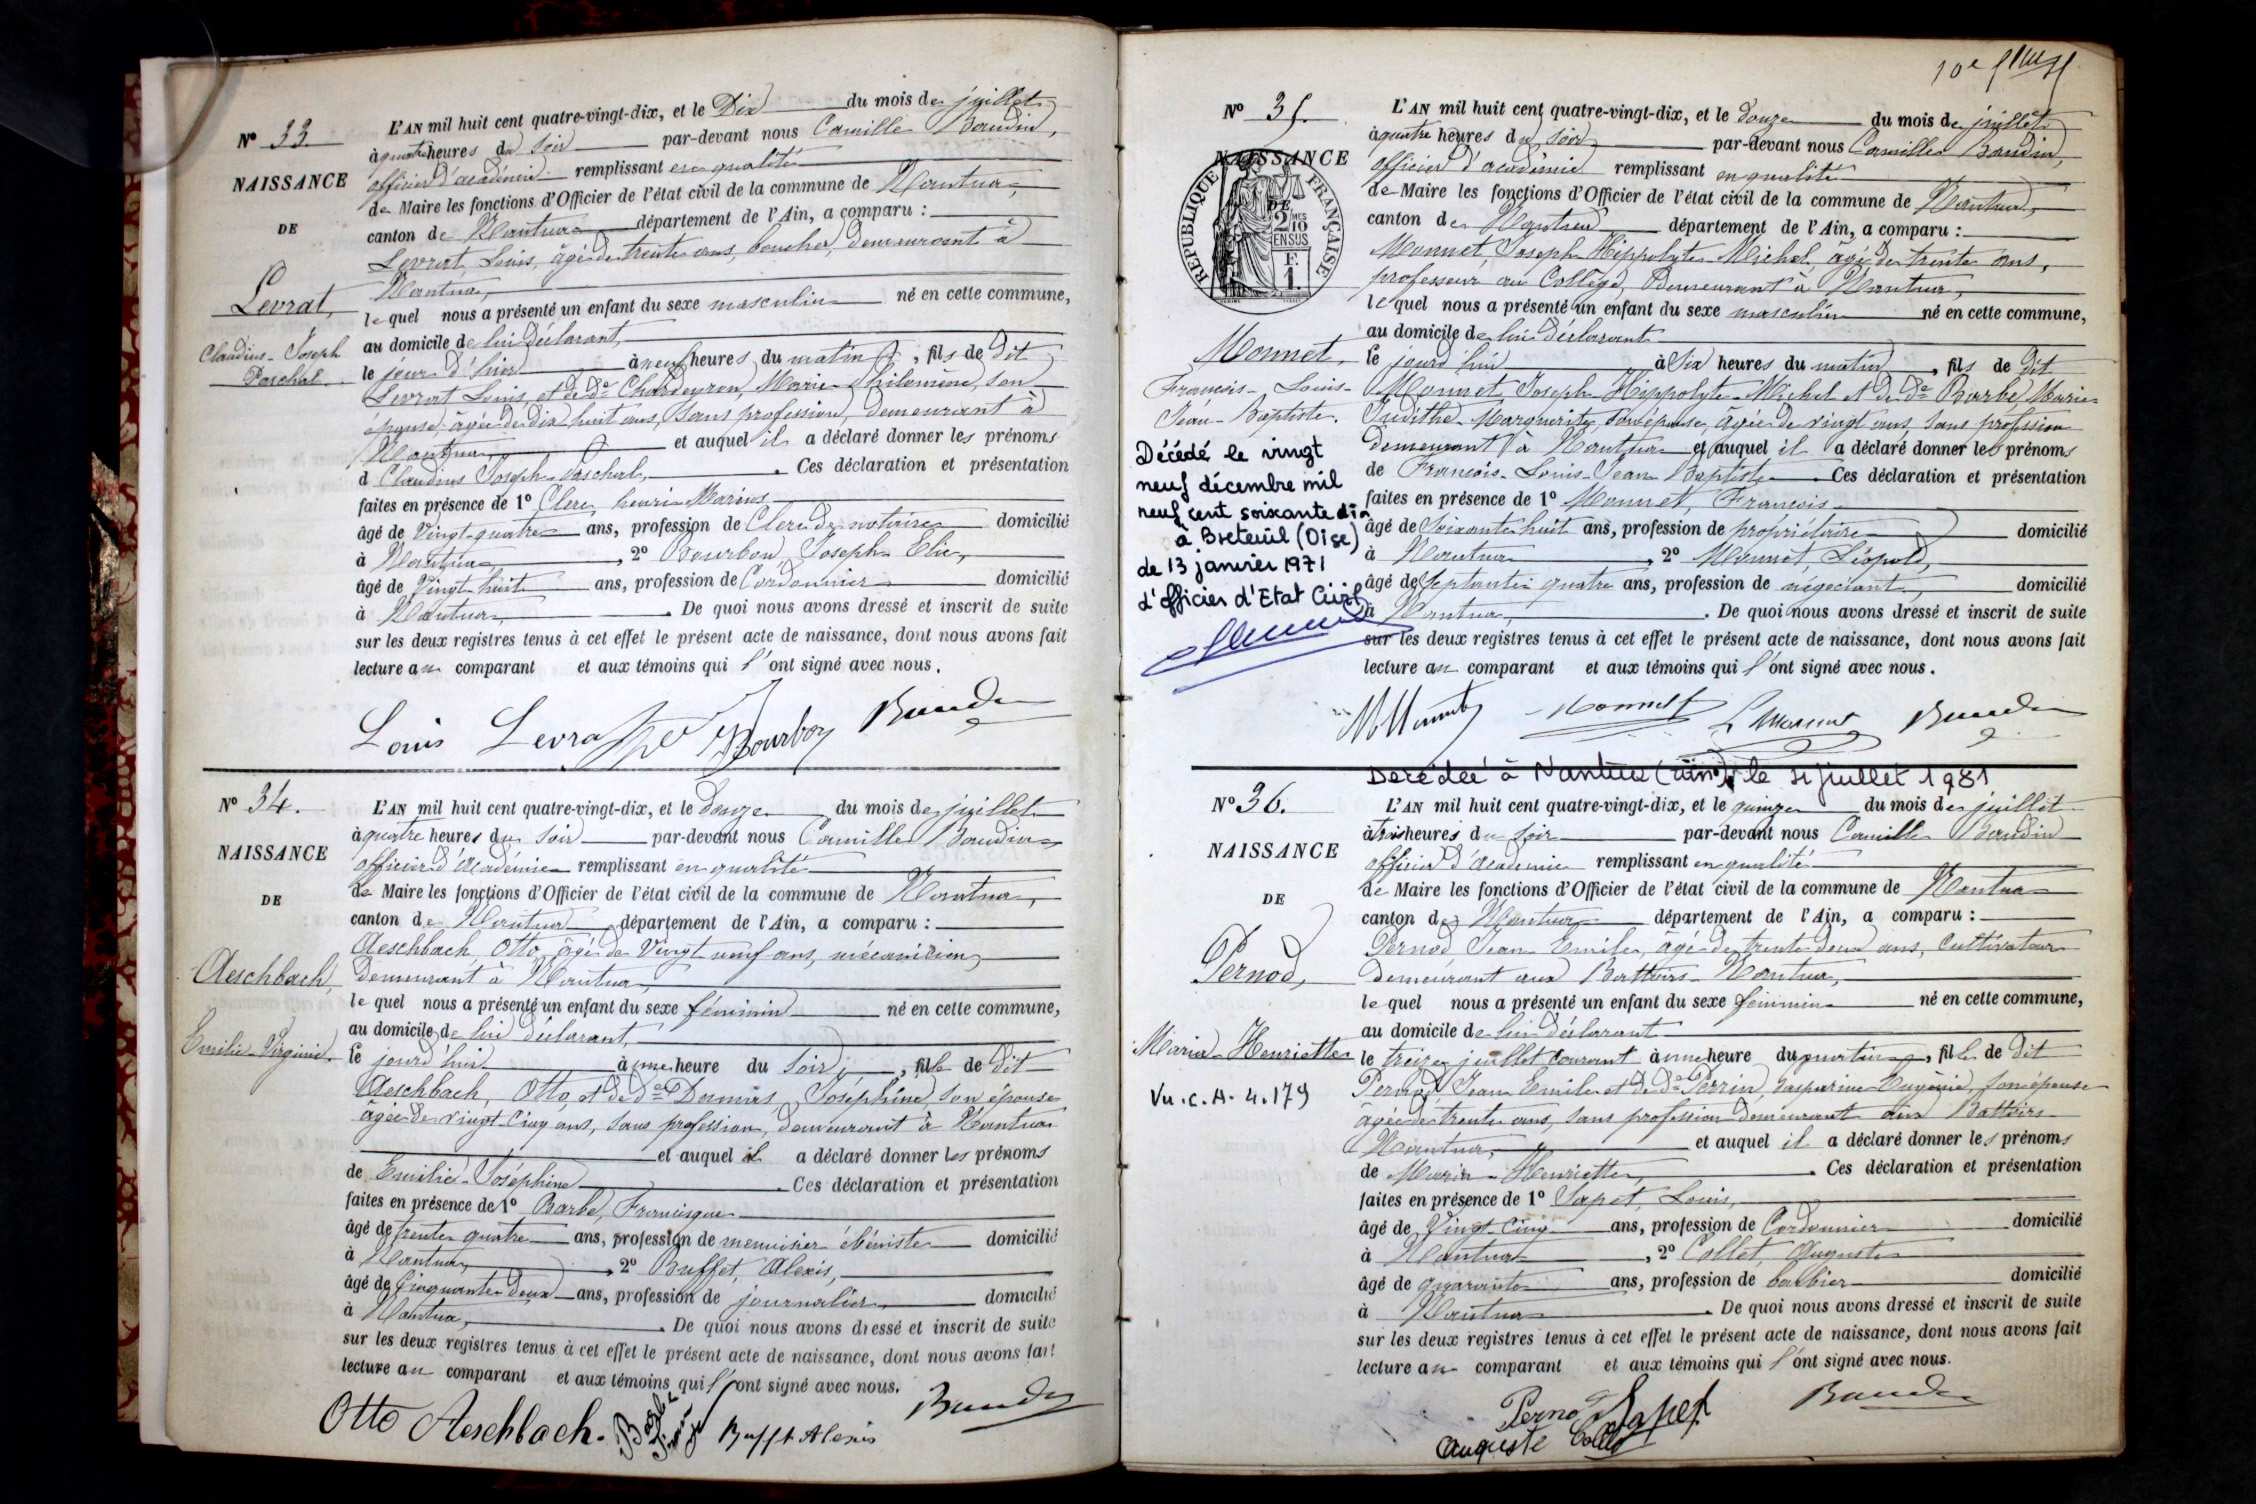 Nº 33.
NAISSANCE
DE
Levrat,
Claudius-Joseph
Paschal.
L'AN mil huit cent quatre-vingt-dix, et le Dix du mois de juillet
à quatre heures du soir par-devant nous Camille Baudin,
officier d'académie remplissant en qualité
de Maire les fonctions d'Officier de l'état civil de la commune de Nantua,
canton de Nantua département de l'Ain, a comparu :
Levrat, Louis, âgé de trente ans, boucher, demeurant à
Nantua,
lequel nous a présenté un enfant du sexe masculin né en cette commune,
au domicile de lui déclarant,
le jour d'hier à neuf heures du matin, fils de dit
Levrat Louis, et de de Chardeyron, Marie Philomène, son
épouse âgée de dix huit ans, sans profession, demeurant à
Nantua, et auquel il a déclaré donner les prénoms
d Claudius Joseph Paschal, . Ces déclaration et présentation
faites en présence de 1º Clerc, henri Marius
âgé de Vingt-quatre ans, profession de Clerc de notaire domicilié
à Nantua, 2º Bourbon, Joseph Elie,
âgé de Vingt huit ans, profession de Cordonnier domicilié
à Nantua, . De quoi nous avons dressé et inscrit de suite
sur les deux registres tenus à cet effet le présent acte de naissance, dont nous avons fait
lecture au comparant et aux témoins qui l'ont signé avec nous.
Louis Levrat Bourbon Baudin
Nº 34.
NAISSANCE
DE
Aeschbach,
Emilie-Virginie.
L'AN mil huit cent quatre-vingt-dix, et le douze du mois de juillet
à quatre heures du soir par-devant nous Camille Baudin
officier d'académie remplissant en qualité
de Maire les fonctions d'Officier de l'état civil de la commune de Nantua,
canton de Nantua département de l'Ain, a comparu :
Aeschbach, Otto, âgé de Vingt neuf ans, mécanicien,
demeurant à Nantua,
lequel nous a présenté un enfant du sexe féminin né en cette commune,
au domicile de lui déclarant,
le jourd'hui à une heure du soir, fille de dit
Aeschbach, Otto, et de de Joséphine, son épouse
âgée de vingt-cinq ans, sans profession, demeurant à Nantua
et auquel il a déclaré donner les prénoms
de Emilie-Joséphine . Ces déclaration et présentation
faites en présence de 1º Barbe, Francisque
âgé de trente quatre ans, profession de menuisier ébéniste domicilié
à Nantua, 2º Buffet, Alexis,
âgé de Cinquante-deux ans, profession de journalier domicilié
à Nantua, . De quoi nous avons dressé et inscrit de suite
sur les deux registres tenus à cet effet le présent acte de naissance, dont nous avons fait
lecture au comparant et aux témoins qui l'ont signé avec nous.
Otto Aeschbach. Barbe Buffet Alexis Baudin
10e
Nº 35.
NAISSANCE
DE
RÉPUBLIQUE FRANÇAISE
2/10 MES
EN SUS
F.
1.
Monnet,
François-Louis-
Jean-Baptiste.
Décédé le vingt
neuf décembre mil
neuf cent soixante dix
à Breteuil (Oise)
de 13 janvier 1971
d'officier d'Etat Civil
L'AN mil huit cent quatre-vingt-dix, et le douze du mois de juillet
à quatre heures du soir par-devant nous Camille Baudin,
officier d'académie remplissant en qualité
de Maire les fonctions d'Officier de l'état civil de la commune de Nantua,
canton de Nantua département de l'Ain, a comparu :
Monnet, Joseph Hippolyte Michel, âgé de trente ans,
professeur au Collège, Demeurant à Nantua,
lequel nous a présenté un enfant du sexe masculin né en cette commune,
au domicile de lui déclarant
le jourd'hui à Six heures du matin, fils de dit
Monnet, Joseph Hippolyte Michel et de de Barbe Marie
Judithe-Marguerite, son épouse, âgée de vingt ans, sans profession
demeurant à Nantua et auquel il a déclaré donner les prénoms
de François-Louis-Jean Baptiste . Ces déclaration et présentation
faites en présence de 1º Monnet, François
âgé de Soixante huit ans, profession de propriétaire domicilié
à Nantua, 2º Monnet, Léopold,
âgé de Septante quatre ans, profession de négociant, domicilié
à Nantua, . De quoi nous avons dressé et inscrit de suite
sur les deux registres tenus à cet effet le présent acte de naissance, dont nous avons fait
lecture au comparant et aux témoins qui l'ont signé avec nous.
Monnet Monnet L Monnet Baudin
Decédée à Nantua (ain) le 21 juillet 1981
Nº 36.
NAISSANCE
DE
Pernod,
Maria-Henriette
Vu.c.A.4.179
L'AN mil huit cent quatre-vingt-dix, et le quinze du mois de juillet
à trois heures du soir par-devant nous Camille Baudin
officier d'académie remplissant en qualité
de Maire les fonctions d'Officier de l'état civil de la commune de Nantua
canton de Nantua département de l'Ain, a comparu :
Pernod Jean Emile, âgé de trente-deux ans, Cultivateur
demeurant aux Battoirs-Nantua,
lequel nous a présenté un enfant du sexe féminin né en cette commune,
au domicile de lui déclarant
le treize juillet courant à une heure du matin, fille de dit
Pernod, Jean Emile et de de Perrin, Gasparine Eugénie, son épouse
âgée de trente ans, sans profession demeurant aux Battoirs-
Nantua, et auquel il a déclaré donner les prénoms
de Maria-Henriette, . Ces déclaration et présentation
faites en présence de 1º Sapet, Louis,
âgé de Vingt-Cinq ans, profession de Cordonnier domicilié
à Nantua, 2º Collet, Auguste
âgé de quarante ans, profession de barbier domicilié
à Nantua . De quoi nous avons dressé et inscrit de suite
sur les deux registres tenus à cet effet le présent acte de naissance, dont nous avons fait
lecture au comparant et aux témoins qui l'ont signé avec nous.
Pernod Sapet Baudin
Auguste Collet